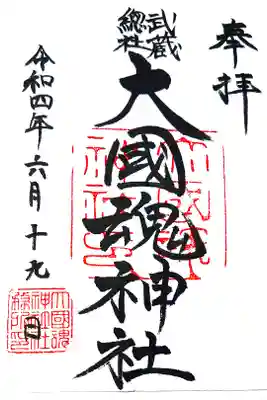 奉拝
武蔵
總社
大國魂神社
令和四年六月十九日